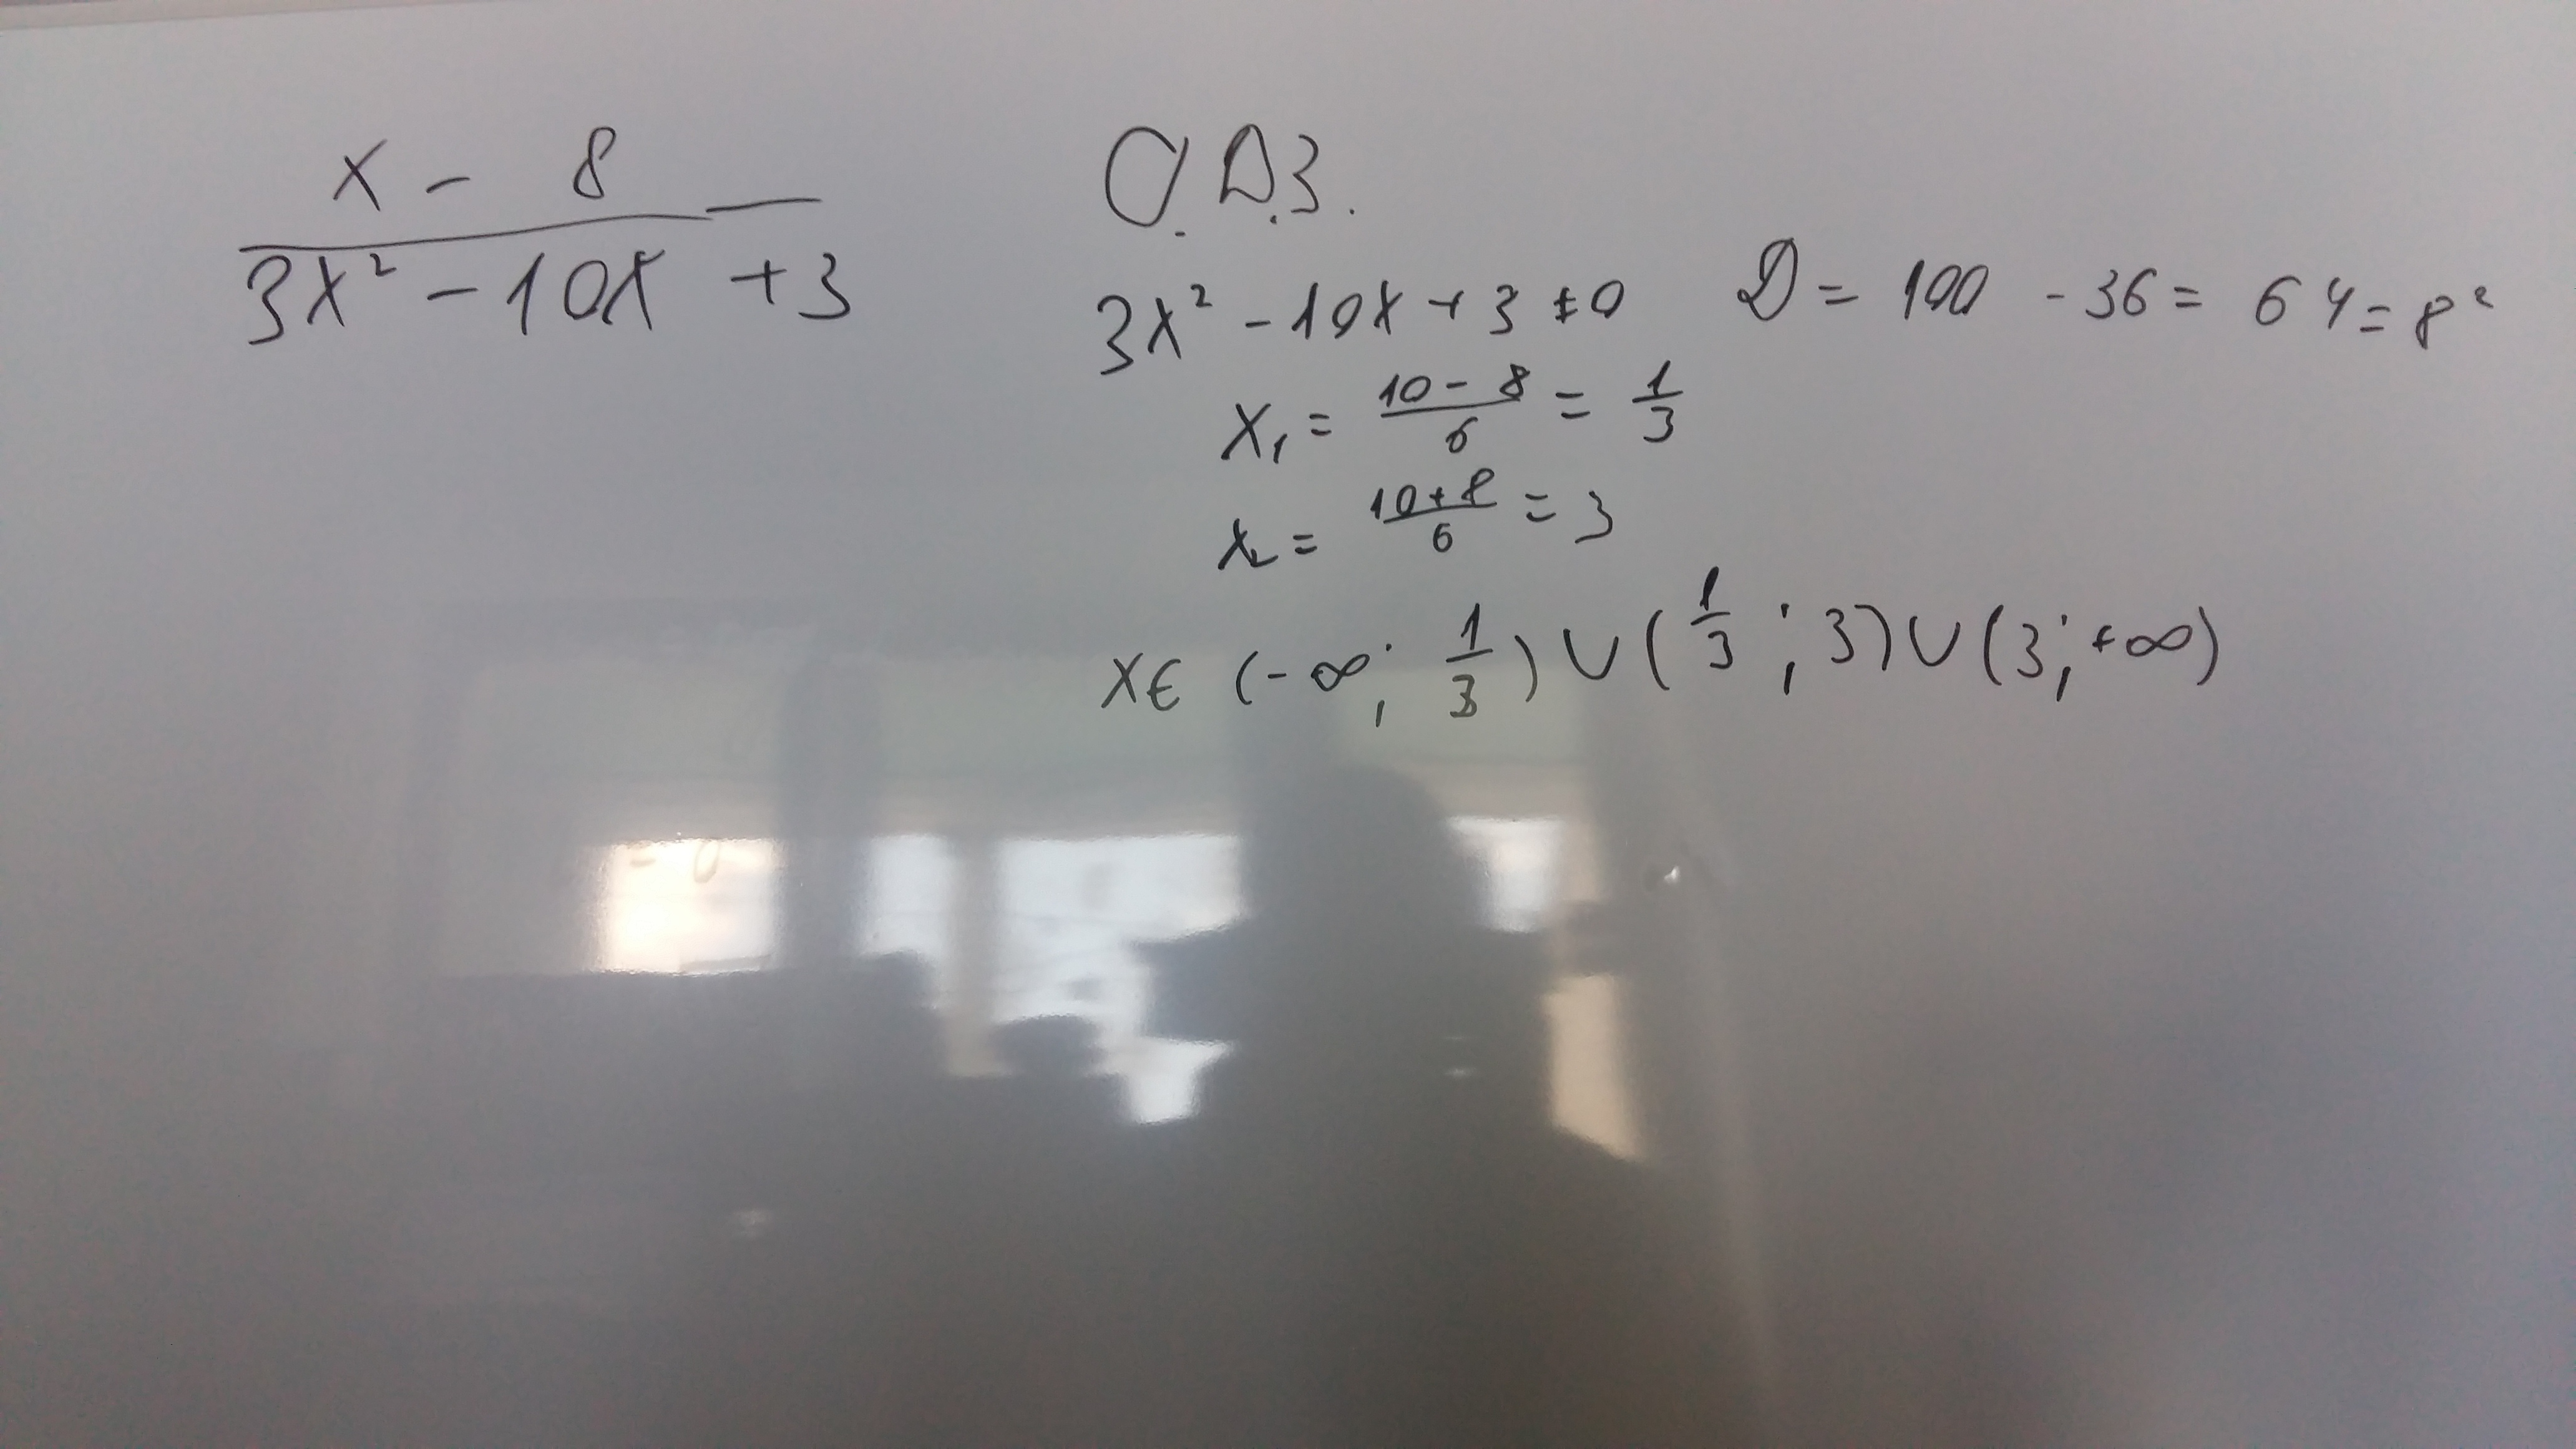 x - 8
3x² - 10x + 3
О.Д.З.
3x² - 10x + 3 ≠ 0 D = 100 - 36 = 64 = 8²
x₁ = (10 - 8)/6 = 1/3
x₂ = (10 + 8)/6 = 3
x ∈ (-∞; 1/3) ∪ (1/3; 3) ∪ (3; +∞)